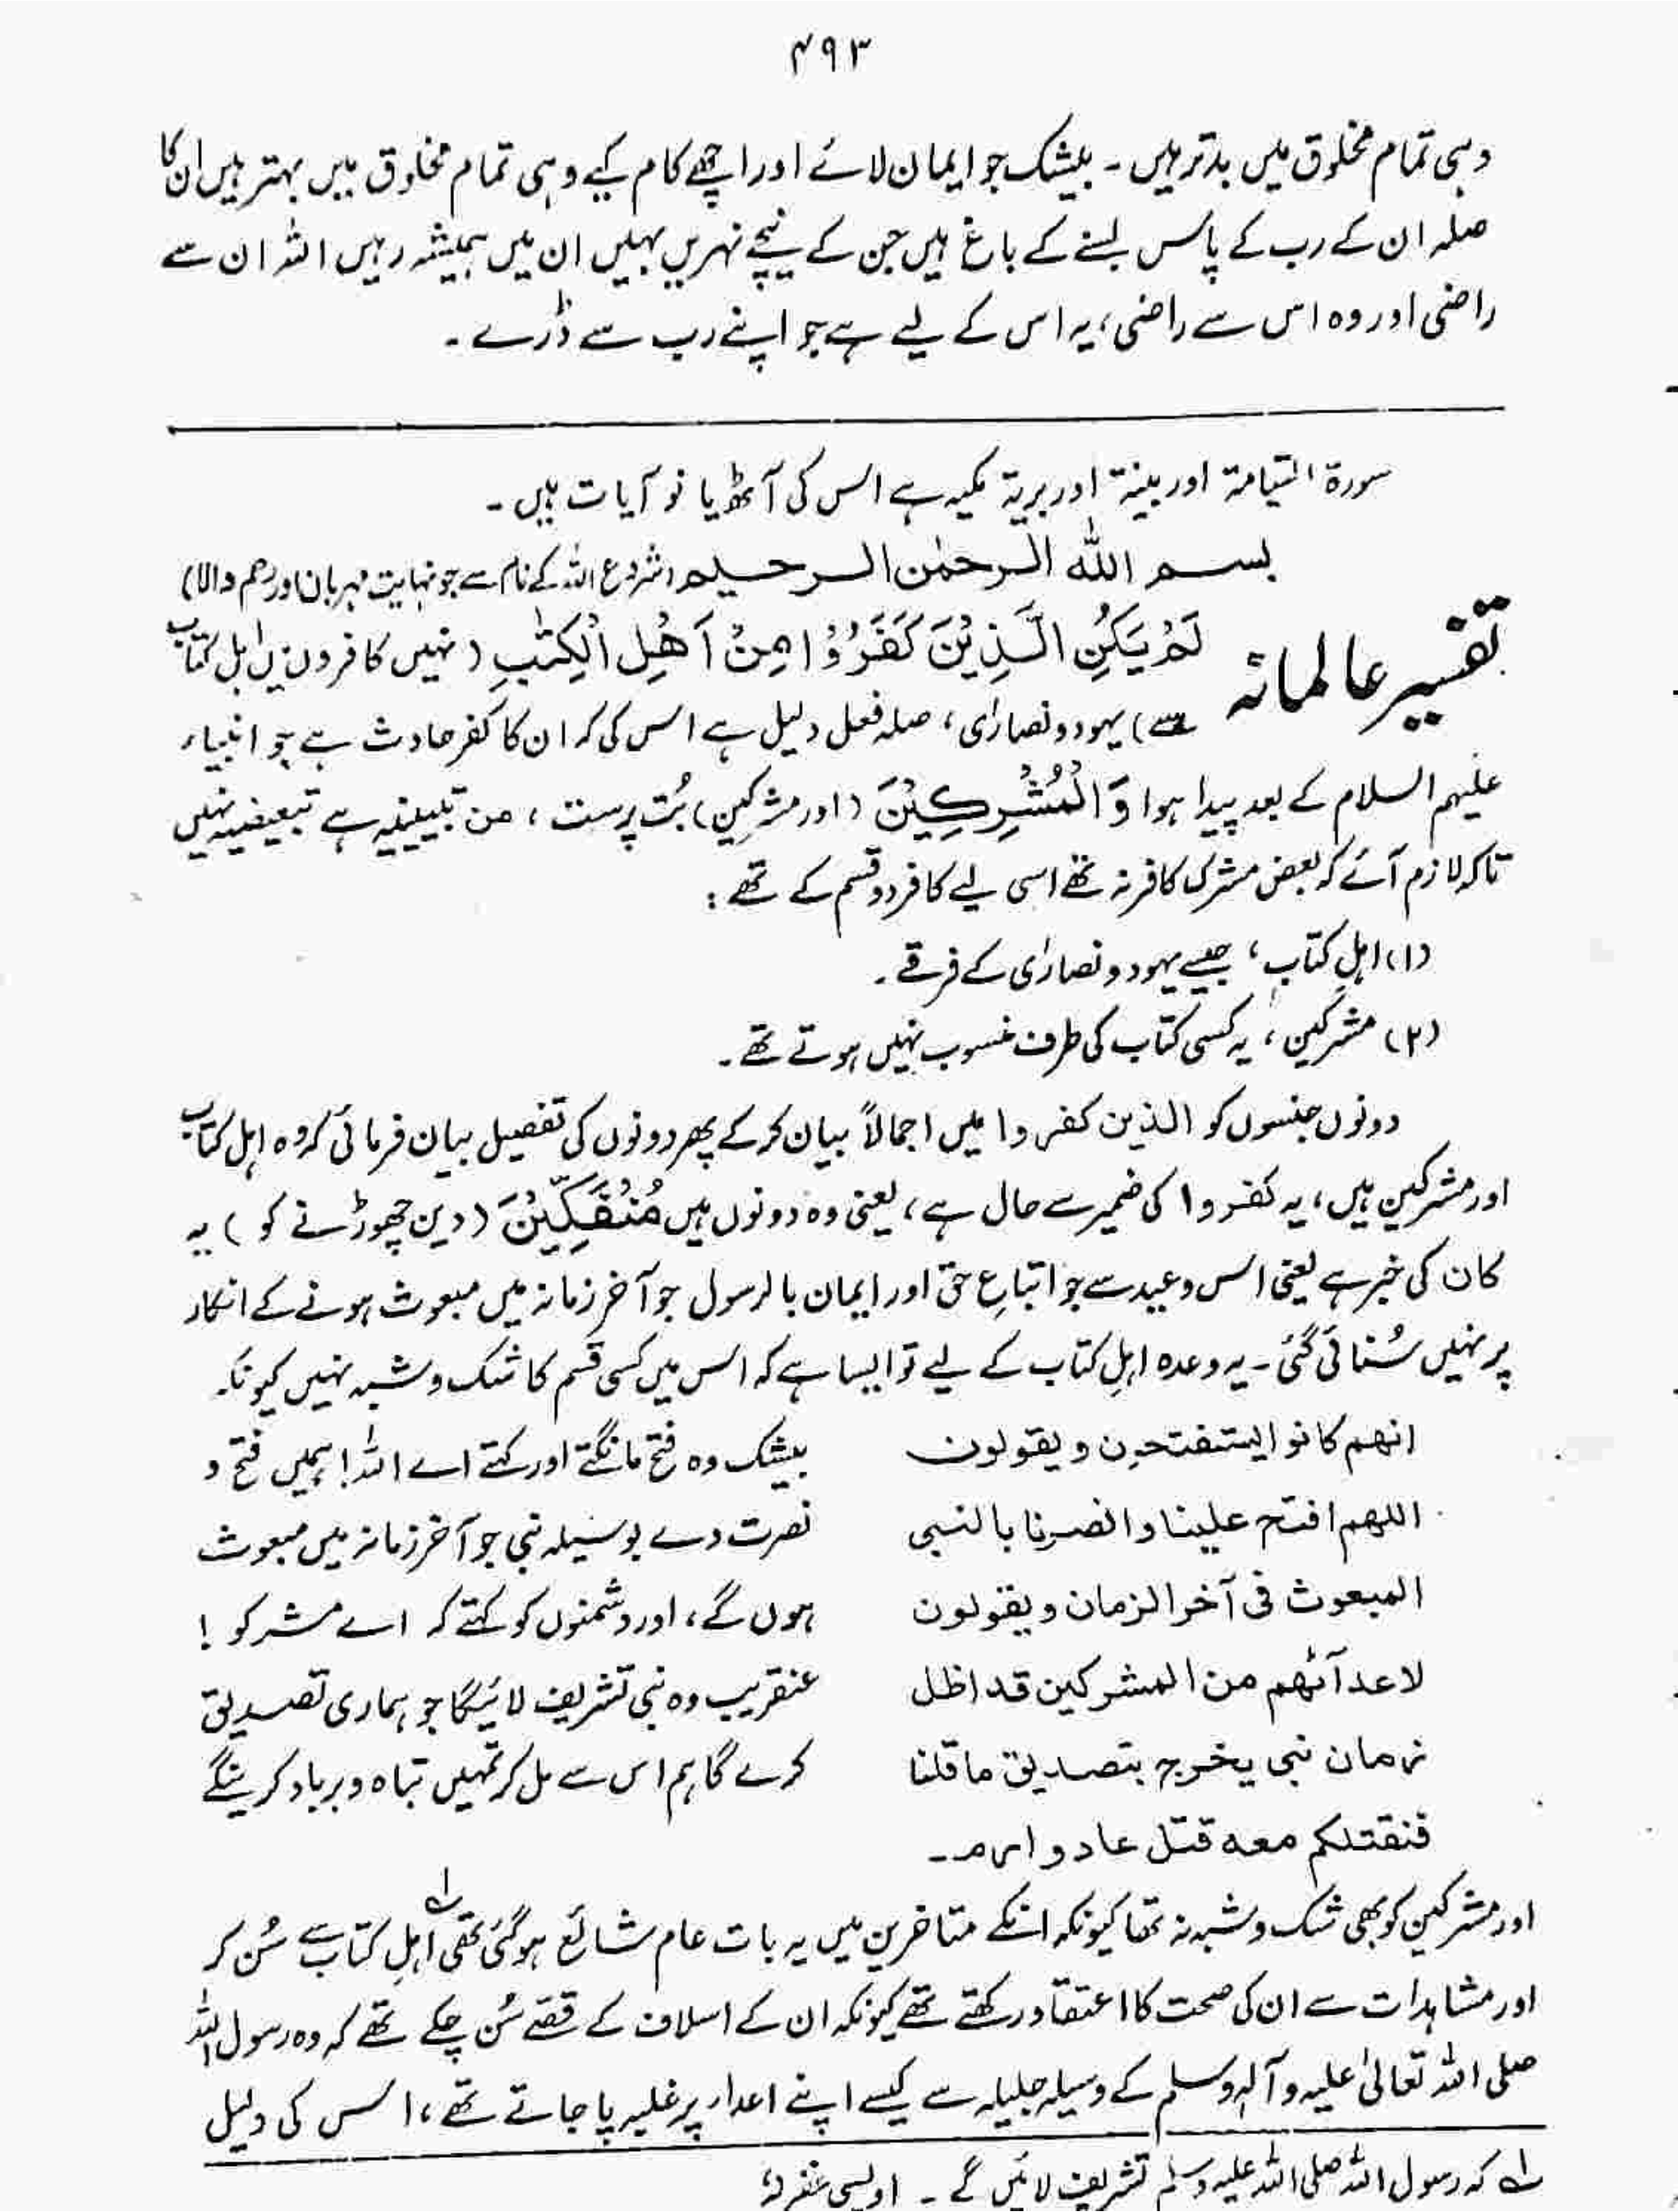 ۴۹۳
وہی تمام مخلوق میں بدتر ہیں۔ بیشک جو ایمان لائے اور اچھے کام کیے وہی تمام مخلوق میں بہتر ہیں ان کا
صلہ ان کے رب کے پاس بسنے کے باغ ہیں جن کے نیچے نہریں بہیں ان میں ہمیشہ رہیں اللہ ان سے
راضی اور وہ اس سے راضی، یہ اس کے لیے ہے جو اپنے رب سے ڈرے۔
سورۃ القیامۃ اور بینۃ اور بریۃ مکیہ ہے اس کی آٹھ یا نو آیات ہیں۔
بسم اللہ الرحمٰن الرحیم (شروع اللہ کے نام سے جو نہایت مہربان اور رحم والا)
تفسیر عالمانہ لَمْ یَکُنِ الَّذِیْنَ کَفَرُوْا مِنْ اَھْلِ الْکِتٰبِ (نہیں کافروں نے اہل کتاب
سے) یہود و نصارٰی، صلہ فعل دلیل ہے اس کی کہ ان کا کفر حادث ہے جو انبیاء
علیہم السلام کے بعد پیدا ہوا وَالْمُشْرِکِیْنَ (اور مشرکین) بُت پرست، من تبیینیہ ہے تبعیضیہ نہیں
تاکہ لازم آئے کہ بعض مشرک کافر نہ تھے اسی لیے کافر دو قسم کے تھے :
(۱) اہلِ کتاب، جیسے یہود و نصارٰی کے فرقے۔
(۲) مشرکین، یہ کسی کتاب کی طرف منسوب نہیں ہوتے تھے۔
دونوں جنسوں کو الذین کفروا میں اجمالاً بیان کرکے پھر دونوں کی تفصیل بیان فرمائی کہ وہ اہل کتاب
اور مشرکین ہیں، یہ کفروا کی ضمیر سے حال ہے، یعنی وہ دونوں ہیں مُنْفَکِّیْنَ (دین چھوڑنے کو) یہ
کان کی خبر ہے یعنی اس وعید سے جو اتباعِ حق اور ایمان بالرسول جو آخر زمانہ میں مبعوث ہونے کے انکار
پر نہیں سُنائی گئی۔ یہ وعدہ اہلِ کتاب کے لیے تو ایسا ہے کہ اس میں کسی قسم کا شک و شبہ نہیں کیونکہ
انھم کانوا یستفتحون ویقولون
اللھم افتح علینا وانصرنا بالنبی
المبعوث فی آخر الزمان ویقولون
لاعدآئھم من المشرکین قد اظل
زمان نبی یخرج بتصدیق ما قلنا
فنقتلکم معہ قتل عاد و ارم۔
بیشک وہ فتح مانگتے اور کہتے اے اللہ! ہمیں فتح و
نصرت دے بوسیلہ نبی جو آخر زمانہ میں مبعوث
ہوں گے، اور دشمنوں کو کہتے کہ اے مشرکو !
عنقریب وہ نبی تشریف لائیگا جو ہماری تصدیق
کرے گا ہم اس سے مل کر تمہیں تباہ و برباد کرینگے
اور مشرکین کو بھی شک و شبہ نہ تھا کیونکہ انکے متاخرین میں یہ بات عام شائع ہوگئی تھی لے اہلِ کتاب سے سُن کر
اور مشاہدات سے ان کی صحت کا اعتقاد رکھتے تھے کیونکہ ان کے اسلاف کے قصے سُن چکے تھے کہ وہ رسول اللہ
صلی اللہ تعالیٰ علیہ وآلہٖ وسلم کے وسیلہ جلیلہ سے کیسے اپنے اعداء پر غلبہ پا جاتے تھے، اس کی دلیل
لے کہ رسول اللہ صلی اللہ علیہ وسلم تشریف لائیں گے۔ اویسی غفرلہٗ